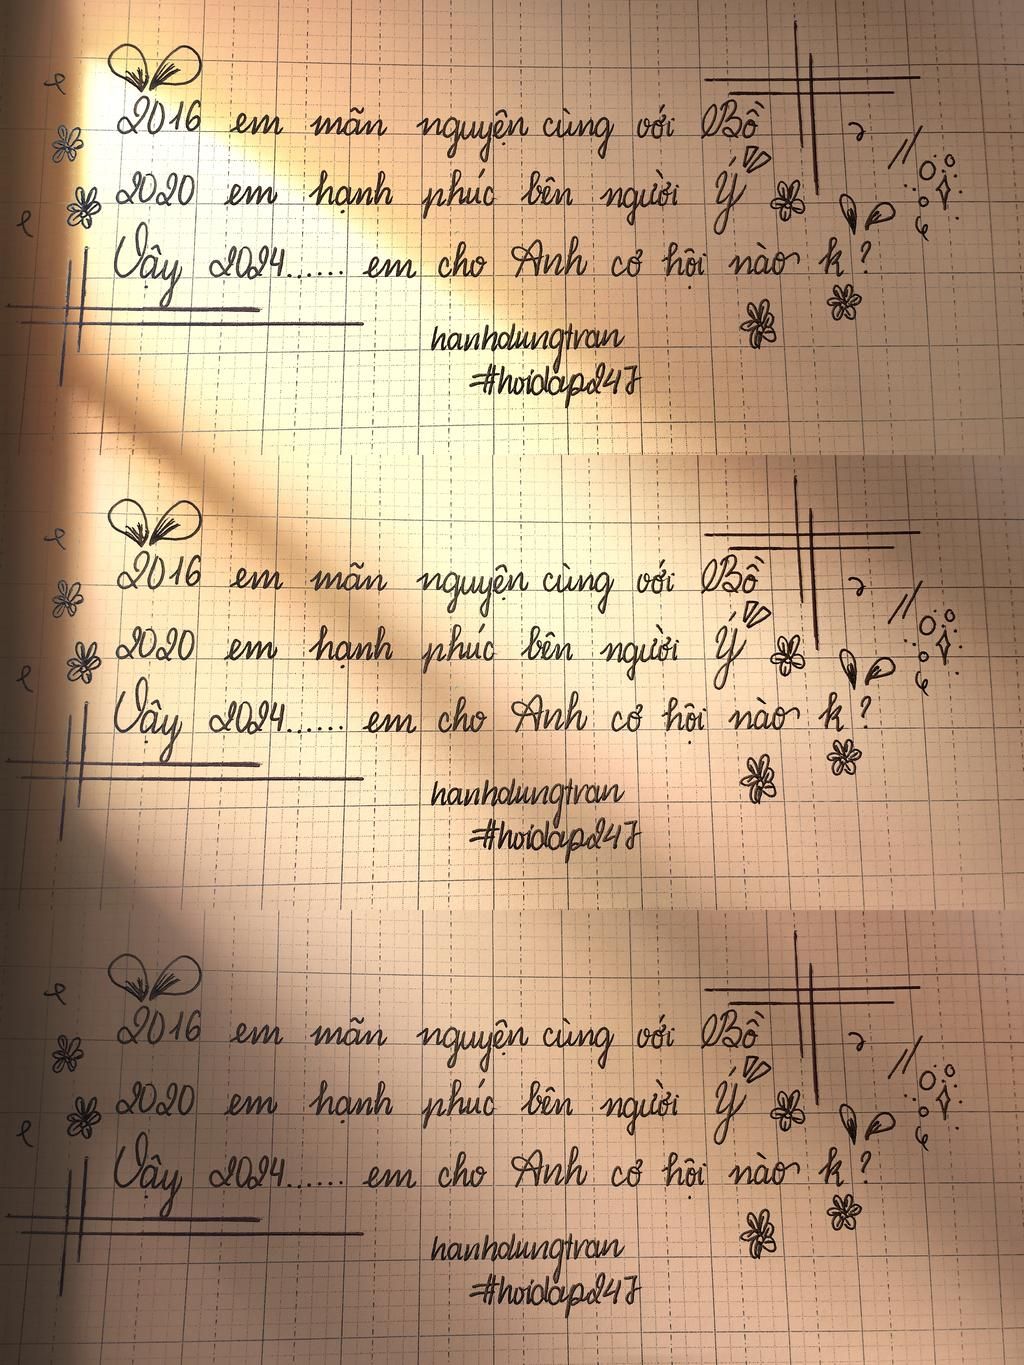 2016 em mãn nguyện cùng với Bồ
2020 em hạnh phúc bên người Ý
Vậy 2024...... em cho Anh cơ hội nào k?
hanhdungtran
#hoidap247
2016 em mãn nguyện cùng với Bồ
2020 em hạnh phúc bên người Ý
Vậy 2024...... em cho Anh cơ hội nào k?
hanhdungtran
#hoidap247
2016 em mãn nguyện cùng với Bồ
2020 em hạnh phúc bên người Ý
Vậy 2024...... em cho Anh cơ hội nào k?
hanhdungtran
#hoidap247